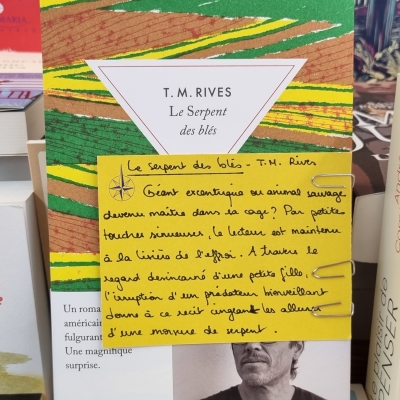 T. M. RIVES
Le Serpent
des blés
Le serpent des blés - T.M. Rives
Géant excentrique ou animal sauvage
devenu maître dans sa cage? Par petites
touches sinueuses, le lecteur est maintenu
à la lisière de l'effroi. A travers le
regard désincarné d'une petite fille,
l'irruption d'un prédateur bienveillant
donne à ce récit cinglant les allures
d'une morsure de serpent.
Un roma
américain
fulgurant
Une magnifique
surprise.
PENSER